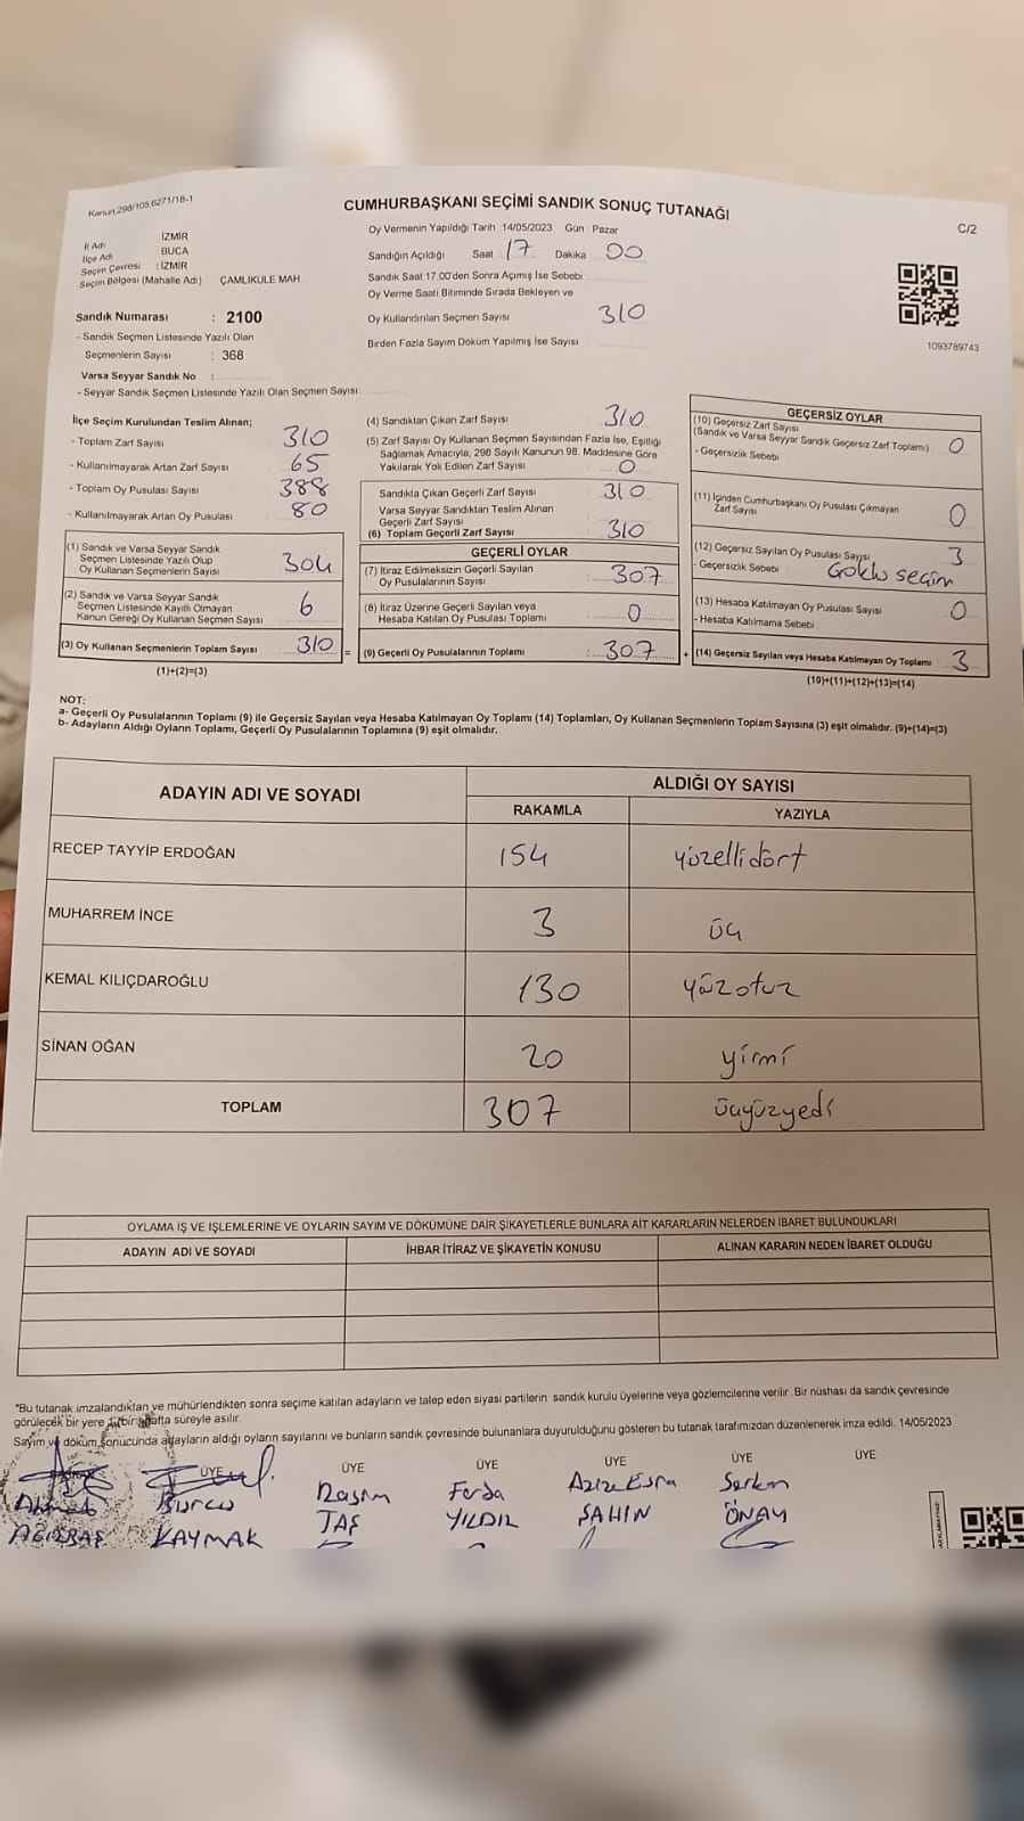 Kanun,298/105,6271/18-1
CUMHURBAŞKANI SEÇİMİ SANDIK SONUÇ TUTANAĞI
C/2
İl Adı İZMİR
İlçe Adı BUCA
Seçim Çevresi : İZMİR
Seçim Bölgesi (Mahalle Adı) ÇAMLIKULE MAH
Sandık Numarası : 2100
- Sandık Seçmen Listesinde Yazılı Olan
Seçmenlerin Sayısı : 368
Varsa Seyyar Sandık No :
- Seyyar Sandık Seçmen Listesinde Yazılı Olan Seçmen Sayısı
Oy Vermenin Yapıldığı Tarih 14/05/2023 Gün Pazar
Sandığın Açıldığı Saat 17 Dakika 00
Sandık Saat 17.00'den Sonra Açımış İse Sebebi
Oy Verme Saati Bitiminde Sırada Bekleyen ve
Oy Kullandırılan Seçmen Sayısı 310
Birden Fazla Sayım Döküm Yapılmış İse Sayısı
1093789743
İlçe Seçim Kurulundan Teslim Alınan;
- Toplam Zarf Sayısı 310
- Kullanılmayarak Artan Zarf Sayısı 65
- Toplam Oy Pusulası Sayısı 388
- Kullanılmayarak Artan Oy Pusulası 80
(1) Sandık ve Varsa Seyyar Sandık
Seçmen Listesinde Yazılı Olup
Oy Kullanan Seçmenlerin Sayısı 304
(2) Sandık ve Varsa Seyyar Sandık
Seçmen Listesinde Kayıtlı Olmayan
Kanun Gereği Oy Kullanan Seçmen Sayısı 6
(3) Oy Kullanan Seçmenlerin Toplam Sayısı 310 =
(1)+(2)=(3)
(4) Sandıktan Çıkan Zarf Sayısı 310
(5) Zarf Sayısı Oy Kullanan Seçmen Sayısından Fazla İse, Eşitliği
Sağlamak Amacıyla, 298 Sayılı Kanunun 98. Maddesine Göre
Yakılarak Yok Edilen Zarf Sayısı 0
Sandıkta Çıkan Geçerli Zarf Sayısı 310
Varsa Seyyar Sandıktan Teslim Alınan
Geçerli Zarf Sayısı
(6) Toplam Geçerli Zarf Sayısı 310
GEÇERLİ OYLAR
(7) İtiraz Edilmeksizin Geçerli Sayılan
Oy Pusulalarının Sayısı : 307
(8) İtiraz Üzerine Geçerli Sayılan veya
Hesaba Katılan Oy Pusulası Toplamı : 0
(9) Geçerli Oy Pusulalarının Toplamı : 307 +
GEÇERSİZ OYLAR
(10) Geçersiz Zarf Sayısı
(Sandık ve Varsa Seyyar Sandık Geçersiz Zarf Toplamı) 0
- Geçersizlik Sebebi
(11) İçinden Cumhurbaşkanı Oy Pusulası Çıkmayan
Zarf Sayısı 0
(12) Geçersiz Sayılan Oy Pusulası Sayısı 3
- Geçersizlik Sebebi Goklu seçim
(13) Hesaba Katılmayan Oy Pusulası Sayısı 0
- Hesaba Katılmama Sebebi
(14) Geçersiz Sayılan veya Hesaba Katılmayan Oy Toplamı 3
(10)+(11)+(12)+(13)=(14)
NOT:
a- Geçerli Oy Pusulalarının Toplamı (9) ile Geçersiz Sayılan veya Hesaba Katılmayan Oy Toplamı (14) Toplamları, Oy Kullanan Seçmenlerin Toplam Sayısına (3) eşit olmalıdır. (9)+(14)=(3)
b- Adayların Aldığı Oyların Toplamı, Geçerli Oy Pusulalarının Toplamına (9) eşit olmalıdır.
ADAYIN ADI VE SOYADI ALDIĞI OY SAYISI
RAKAMLA YAZIYLA
RECEP TAYYİP ERDOĞAN 154 yüzellidört
MUHARREM İNCE 3 üç
KEMAL KILIÇDAROĞLU 130 yüzotuz
SİNAN OĞAN 20 yirmi
TOPLAM 307 üçyüzyedi
OYLAMA İŞ VE İŞLEMLERİNE VE OYLARIN SAYIM VE DÖKÜMÜNE DAİR ŞİKAYETLERLE BUNLARA AİT KARARLARIN NELERDEN İBARET BULUNDUKLARI
ADAYIN ADI VE SOYADI İHBAR İTİRAZ VE ŞİKAYETİN KONUSU ALINAN KARARIN NEDEN İBARET OLDUĞU
*Bu tutanak imzalandıktan ve mühürlendikten sonra seçime katılan adayların ve talep eden siyasi partilerin sandık kurulu üyelerine veya gözlemcilerine verilir. Bir nüshası da sandık çevresinde
görülecek bir yere bir hafta süreyle asılır.
Sayım ve döküm sonucunda adayların aldığı oyların sayılarını ve bunların sandık çevresinde bulunanlara duyurulduğunu gösteren bu tutanak tarafımızdan düzenlenerek imza edildi. 14/05/2023
ÜYE ÜYE ÜYE ÜYE ÜYE ÜYE
Ahmet Burcu Rasim Ferda Azize Esra Serkan
KAYMAK TAŞ YILDIZ ŞAHİN ÖNAY